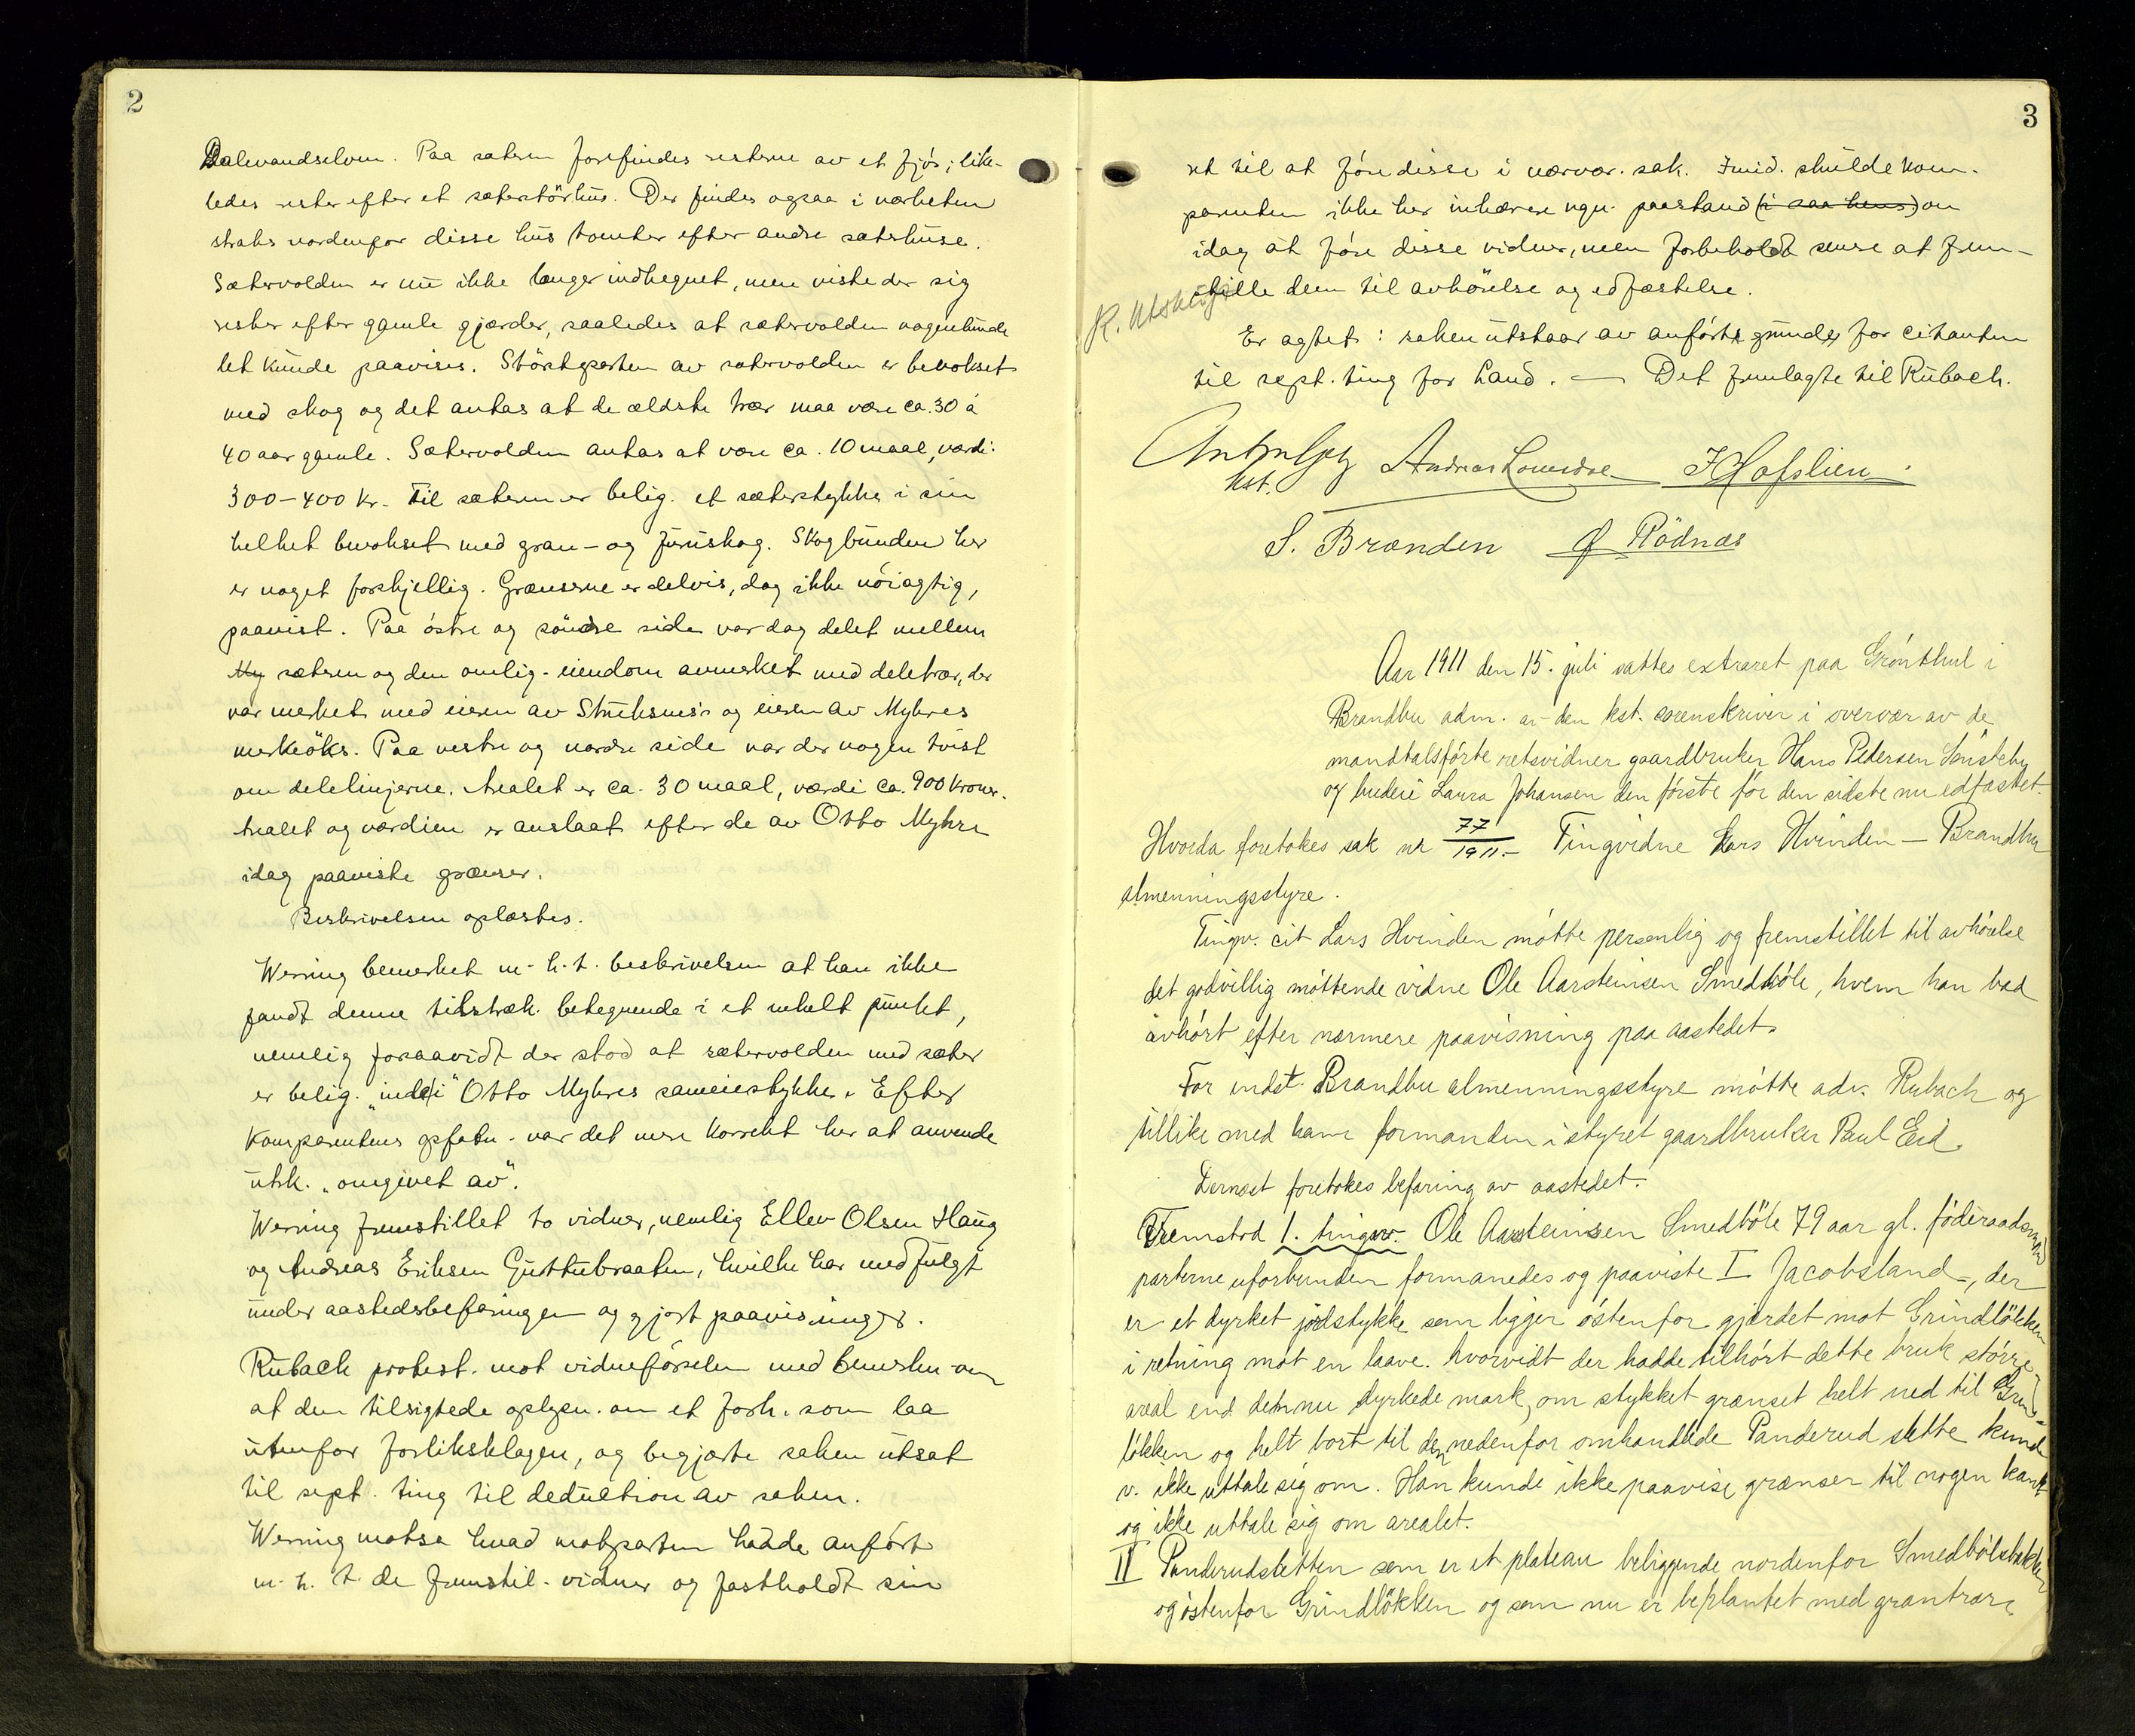 2
Dalevandselven. Paa sæteren forefindes resterne av et fjös; like-
ledes rester efter et sæterstörhus. Der findes ogsaa i nærheten
straks nordenfor disse hus tomter efter andre sæterhuse.
Sætervolden er nu ikke længer indhegnet, men viste der sig
rester efter gamle gjærder, saaledes at sætervolden nogenlunde
let kunde paavises. Störsteparten av sætervolden er bevokset
med skog og det antas at de ældste trær maa være ca. 30 à
40 aar gamle. Sætervolden antas at være ca. 10 maal, værdi:
300-400 kr. Til sæteren er belig. et sæterstykke i sin
helhet bevokset med gran- og furuskog. Skogbunden her
er noget forskjellig. Grænserne er delvis, dog ikke nöiagtig,
paavist. Paa östre og söndre side var dog delet mellem
My sæteren og den omlig. eiendom avmerket med deletrær, der
var merket med eieren av og eieren av Myhres
merkeöks. Paa vestre og nordre side var der nogen tvist
om delelinjerne. Arealet er ca. 30 maal, værdi ca. 900 kroner.
Arealet og værdien er anslaat efter de av Otto Myhre
idag paaviste grænser.
Beskrivelsen oplæstes.
Werring bemerket m. h. t. beskrivelsen at han ikke
fandt denne tilstræk. betegnende i et enkelt punkt,
nemlig forsaavidt der stod at sætervolden med sæter
er belig. "inde i" Otto Myhres sameiestykke. Efter
komparentens opfatn. var det mere korrekt her at anvende
utrk. "omgivet av".
Werring fremstillet to vidner, nemlig Ellev Olsen Haug
og Andreas Eriksen Guttubraaten, hvilke har medfulgt
under aastedsbefaringen og gjort paavisninger.
Rubach protest. mot vidneförselen med bemerkn. om
at den tilsigtede oplysn. om et forh. som laa
utenfor forliksklagen, og begjærte saken utsat
til sept. ting til deduction av saken.
Werring motsa hvad motparten hadde anfört
m. h. t. de fremstil. vidner og fastholdt sin
3
ret til at före disse i nærvær. sak. Imid. skulde kom-
parenten ikke her inhærere ngn. paastand (i saa hens.) om
idag at före disse vidner, men forbeholdt senere at frem-
stille dem til avhörelse og edfæstelse.
K. utskrift
Er agtet: saken utstaar av anförte grunde for citanten
til sept. ting for Land. — Det fremlagte til Rubach.
kst. Andreas Lomsdal J Hofslien
S. Brænden O Rödnæs
Aar 1911 den 15. juli sattes extraret paa Grönthul i
Brandbu adm. av den kst. sorenskriver i overvær av de
mandtalsförte retsvidner gaardbruker Hans Pedersen Sönsteby
og budeie Laura Johansen den förste för den sidste nu edfæstet.
Hvorda foretokes sak nr 77/1911.- Tingvidne Lars Hvinden — Brandbu
almenningsstyre.
Tingv. cit Lars Hvinden mötte personlig og fremstillet til avhörelse
det godvillig möttende vidne Ole Aarsteinsen Smedböle, hvem han bad
avhört efter nærmere paavisning paa aastedet.
For indst. Brandbu almenningsstyre mötte adv. Rubach og
tillike med ham formanden i styret gaardbruker Paul Eid.
Dernæst foretokes befaring av aastedet.
Fremstod 1. tingv. Ole Aarsteinsen Smedböle 79 aar gl. föderaadsmand
parterne uforbunden formanedes og paaviste I Jacobsland, der
er et dyrket jordstykke som ligger östenfor gjerdet mot Grindlökken
i retning mot en laave. hvorvidt der hadde tilhört dette bruk större
areal end den nu dyrkede mark, om stykket grænset helt ned til Grind-
lökken og helt bort til den nedenfor omhandlede Panderud slette kunde
v. ikke uttale sig om. Han kunde ikke paavise grænser til nogen kant
og ikke uttale sig om arealet.
II Panderudsletten som er et plateau beliggende nordenfor Smedbölsbakken
og östenfor Grindlökken og som nu er beplantet med grantrær,